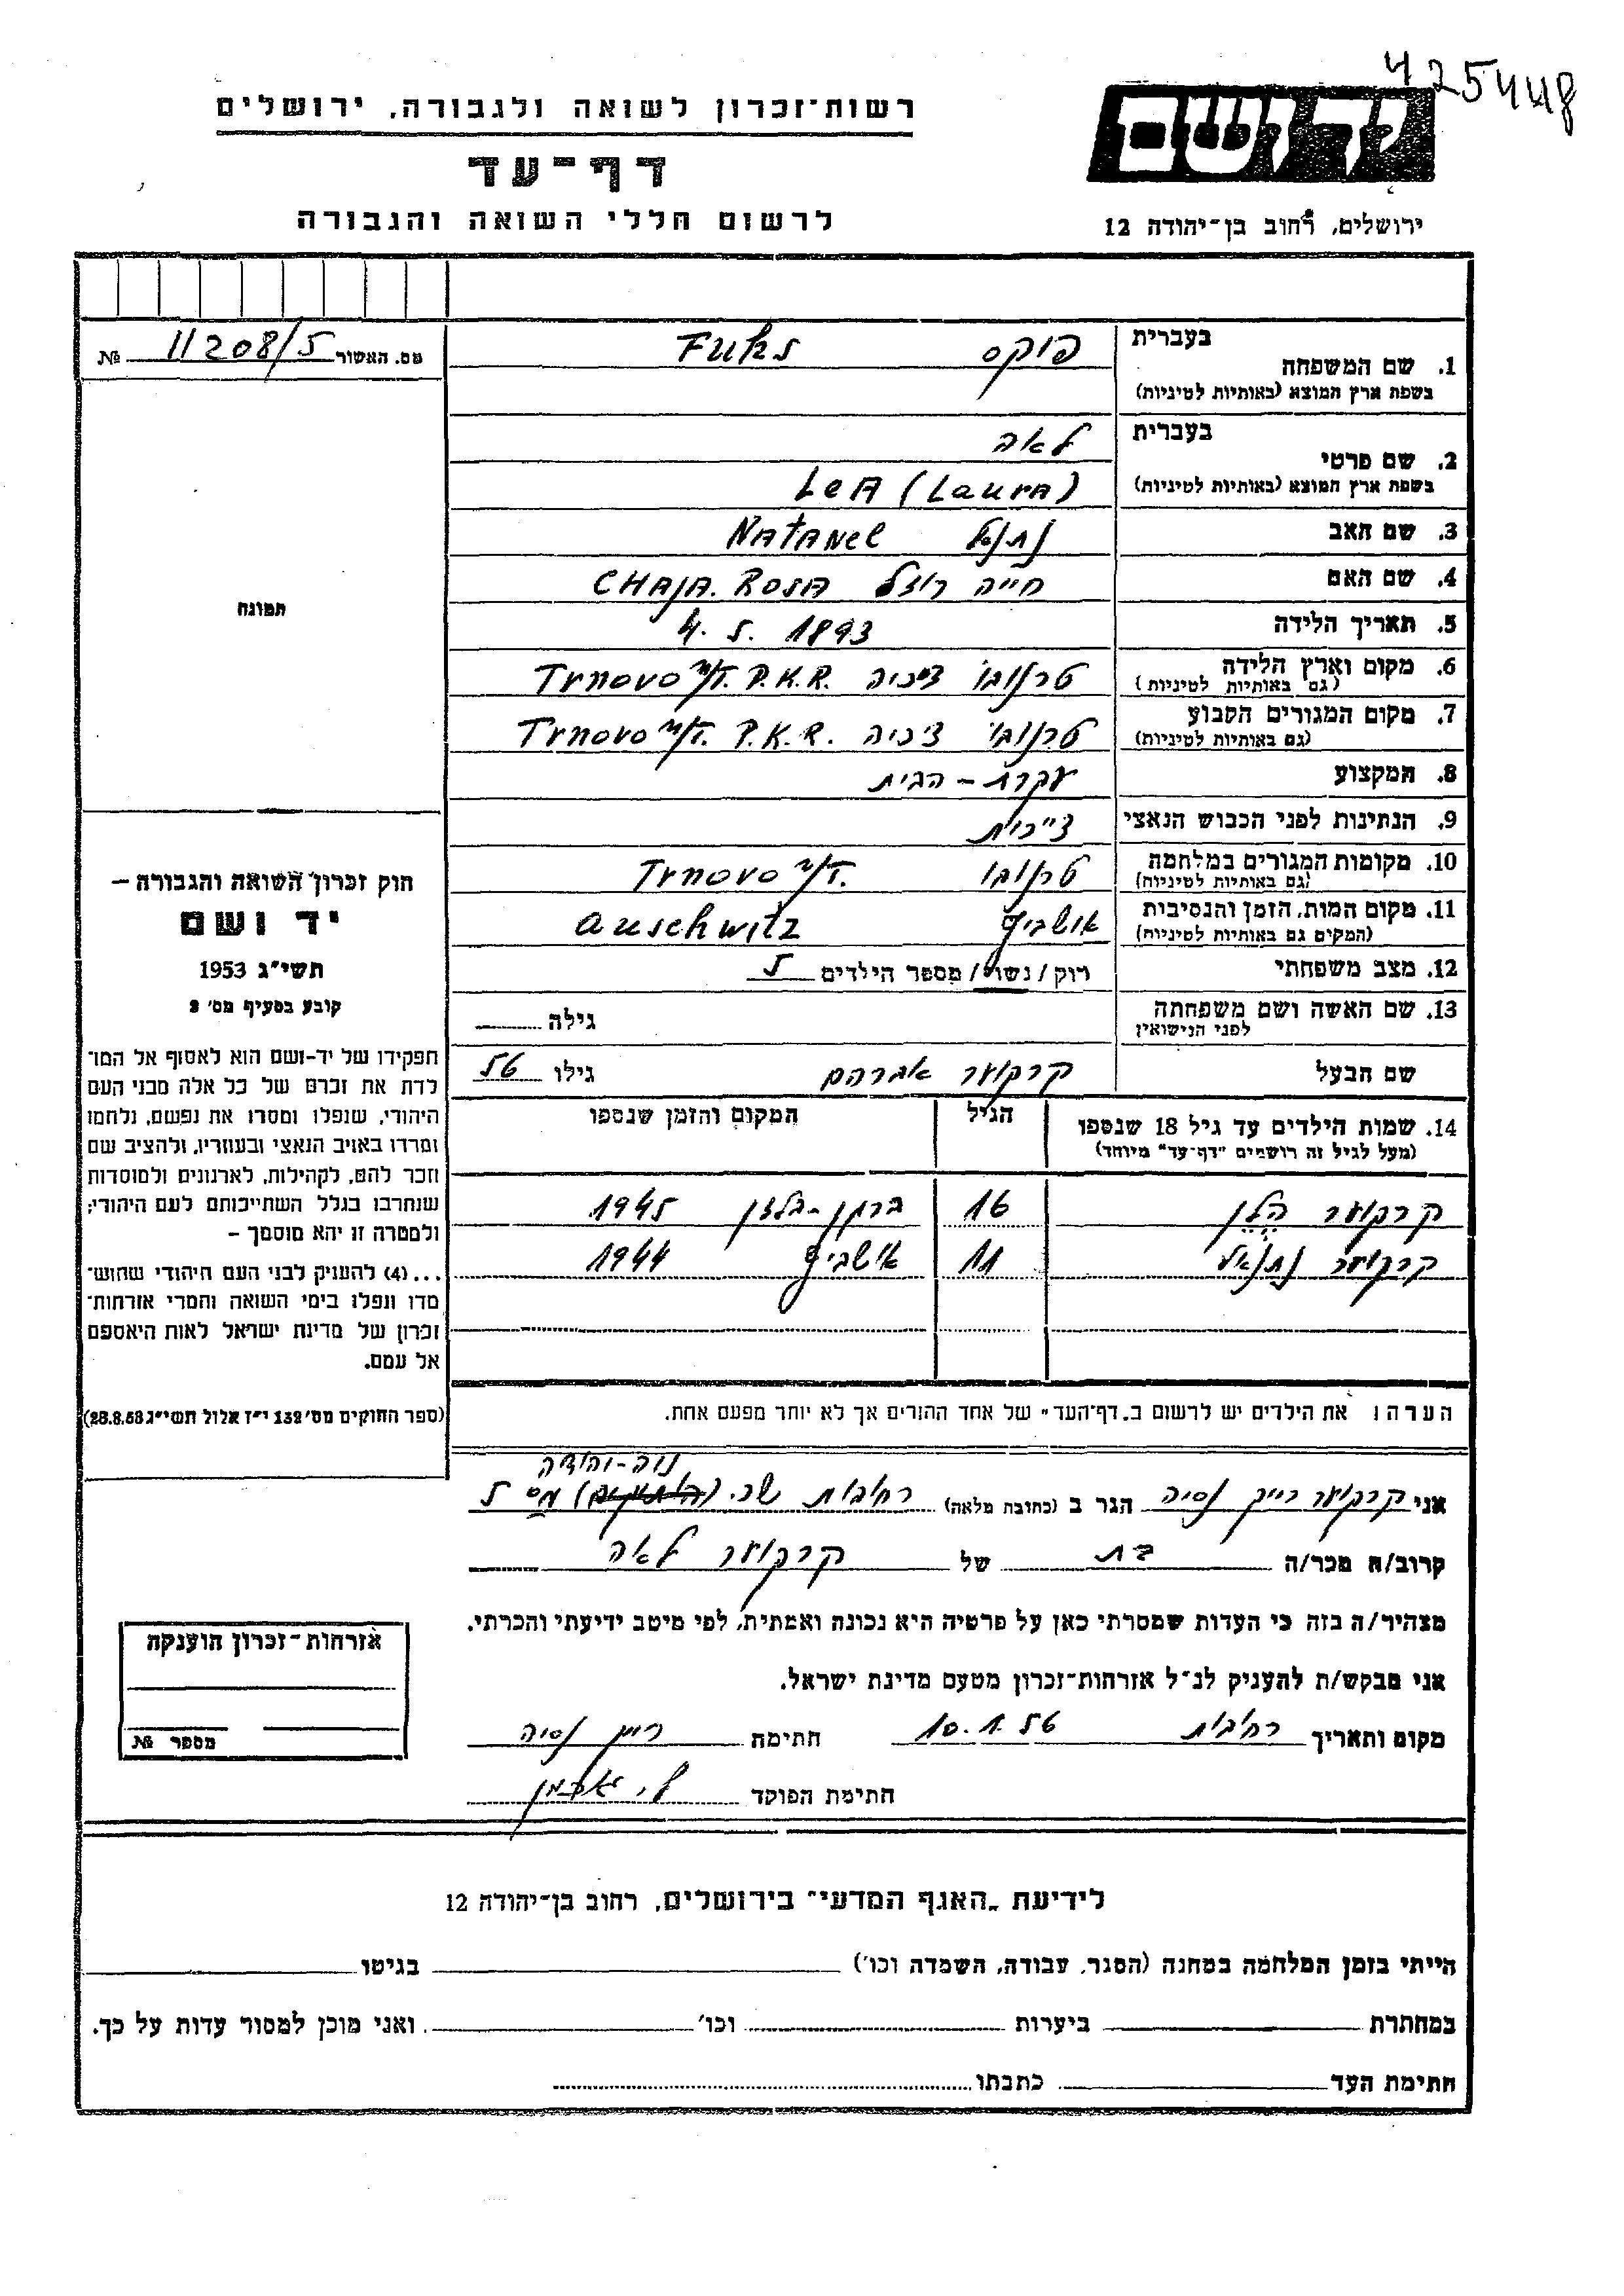 425448
רשות־זכרון לשואה ולגבורה, ירושלים
יד ושם
דף־עד
לרשום חללי השואה והגבורה
ירושלים, רחוב בן־יהודה 12
מס. האשור 11208/5 №
תמונה
חוק זכרון השואה והגבורה —
יד ושם
תשי"ג 1953
קובע בסעיף מס׳ 2
תפקידו של יד-ושם הוא לאסוף אל המו־
לדת את זכרם של כל אלה מבני העם
היהודי, שנפלו ומסרו את נפשם, נלחמו
ומרדו באויב הנאצי ובעוזריו, ולהציב שם
וזכר להם, לקהילות, לארגונים ולמוסדות
שנחרבו בגלל השתייכותם לעם היהודי;
ולמטרה זו יהא מוסמך —
...(4) להעניק לבני העם היהודי שהוש־
מדו ונפלו בימי השואה והמרי אזרחות־
זכרון של מדינת ישראל לאות היאספם
אל עמם.
(ספר החוקים מס׳ 132 י"ז אלול תשי"ג 28.8.53)
בעברית פוקס Fuks
1. שם המשפחה
בשפת ארץ המוצא (באותיות לטיניות)
בעברית לאה
2. שם פרטי
בשפת ארץ המוצא (באותיות לטיניות) LeA (LaurA)
3. שם האב נתנאל NatANel
4. שם האם חייה רוזל CHAJA. ROSA
5. תאריך הלידה 4. 5. 1893
6. מקום וארץ הלידה טרנובו צ'כיה Trnovo n/T. P.K.R.
(גם באותיות לטיניות)
7. מקום המגורים הקבוע טרנובו צ'כיה Trnovo n/T. P.K.R.
(גם באותיות לטיניות)
8. המקצוע עקרת - הבית
9. הנתינות לפני הכבוש הנאצי צ'כית
10. מקומות המגורים במלחמה טרנובו Trnovo n/T.
(גם באותיות לטיניות)
11. מקום המות, הזמן והנסיבות אושביץ Auschwitz
(המקום גם באותיות לטיניות)
12. מצב משפחתי רוק / נשוי / מספר הילדים 5
13. שם האשה ושם משפחתה גילה
לפני הנישואין
שם הבעל קרקוער אברהם גילו 56
14. שמות הילדים עד גיל 18 שנספו הגיל המקום והזמן שנספו
(מעל לגיל זה רושמים "דף־עד" מיוחד)
קרקוער הלן 16 ברגן-בלזן 1945
קרקוער נתנאל 11 אושביץ 1944
הערה: את הילדים יש לרשום ב„דף־העד" של אחד ההורים אך לא יותר מפעם אחת.
נוה-יהודה
אני קרקוער נסיה הגר ב (כתובת מלאה) רחובות שכ. מס 5
קרוב/ה מכר/ה בת של קרקוער לאה
מצהיר/ה בזה כי העדות שמסרתי כאן על פרטיה היא נכונה ואמתית, לפי מיטב ידיעתי והכרתי.
אני מבקש/ת להעניק לנ"ל אזרחות־זכרון מטעם מדינת ישראל.
מקום ותאריך רחובות 10.1.56 חתימה נסיה
חתימת הפוקד
אזרחות־זכרון הוענקה
מספר №
לידיעת „האגף המדעי" בירושלים, רחוב בן־יהודה 12
הייתי בזמן המלחמה במחנה (הסגר, עבודה, השמדה וכו׳) בגיטו
במחתרת ביערות וכו׳ ואני מוכן למסור עדות על כך.
חתימת העד כתבתו